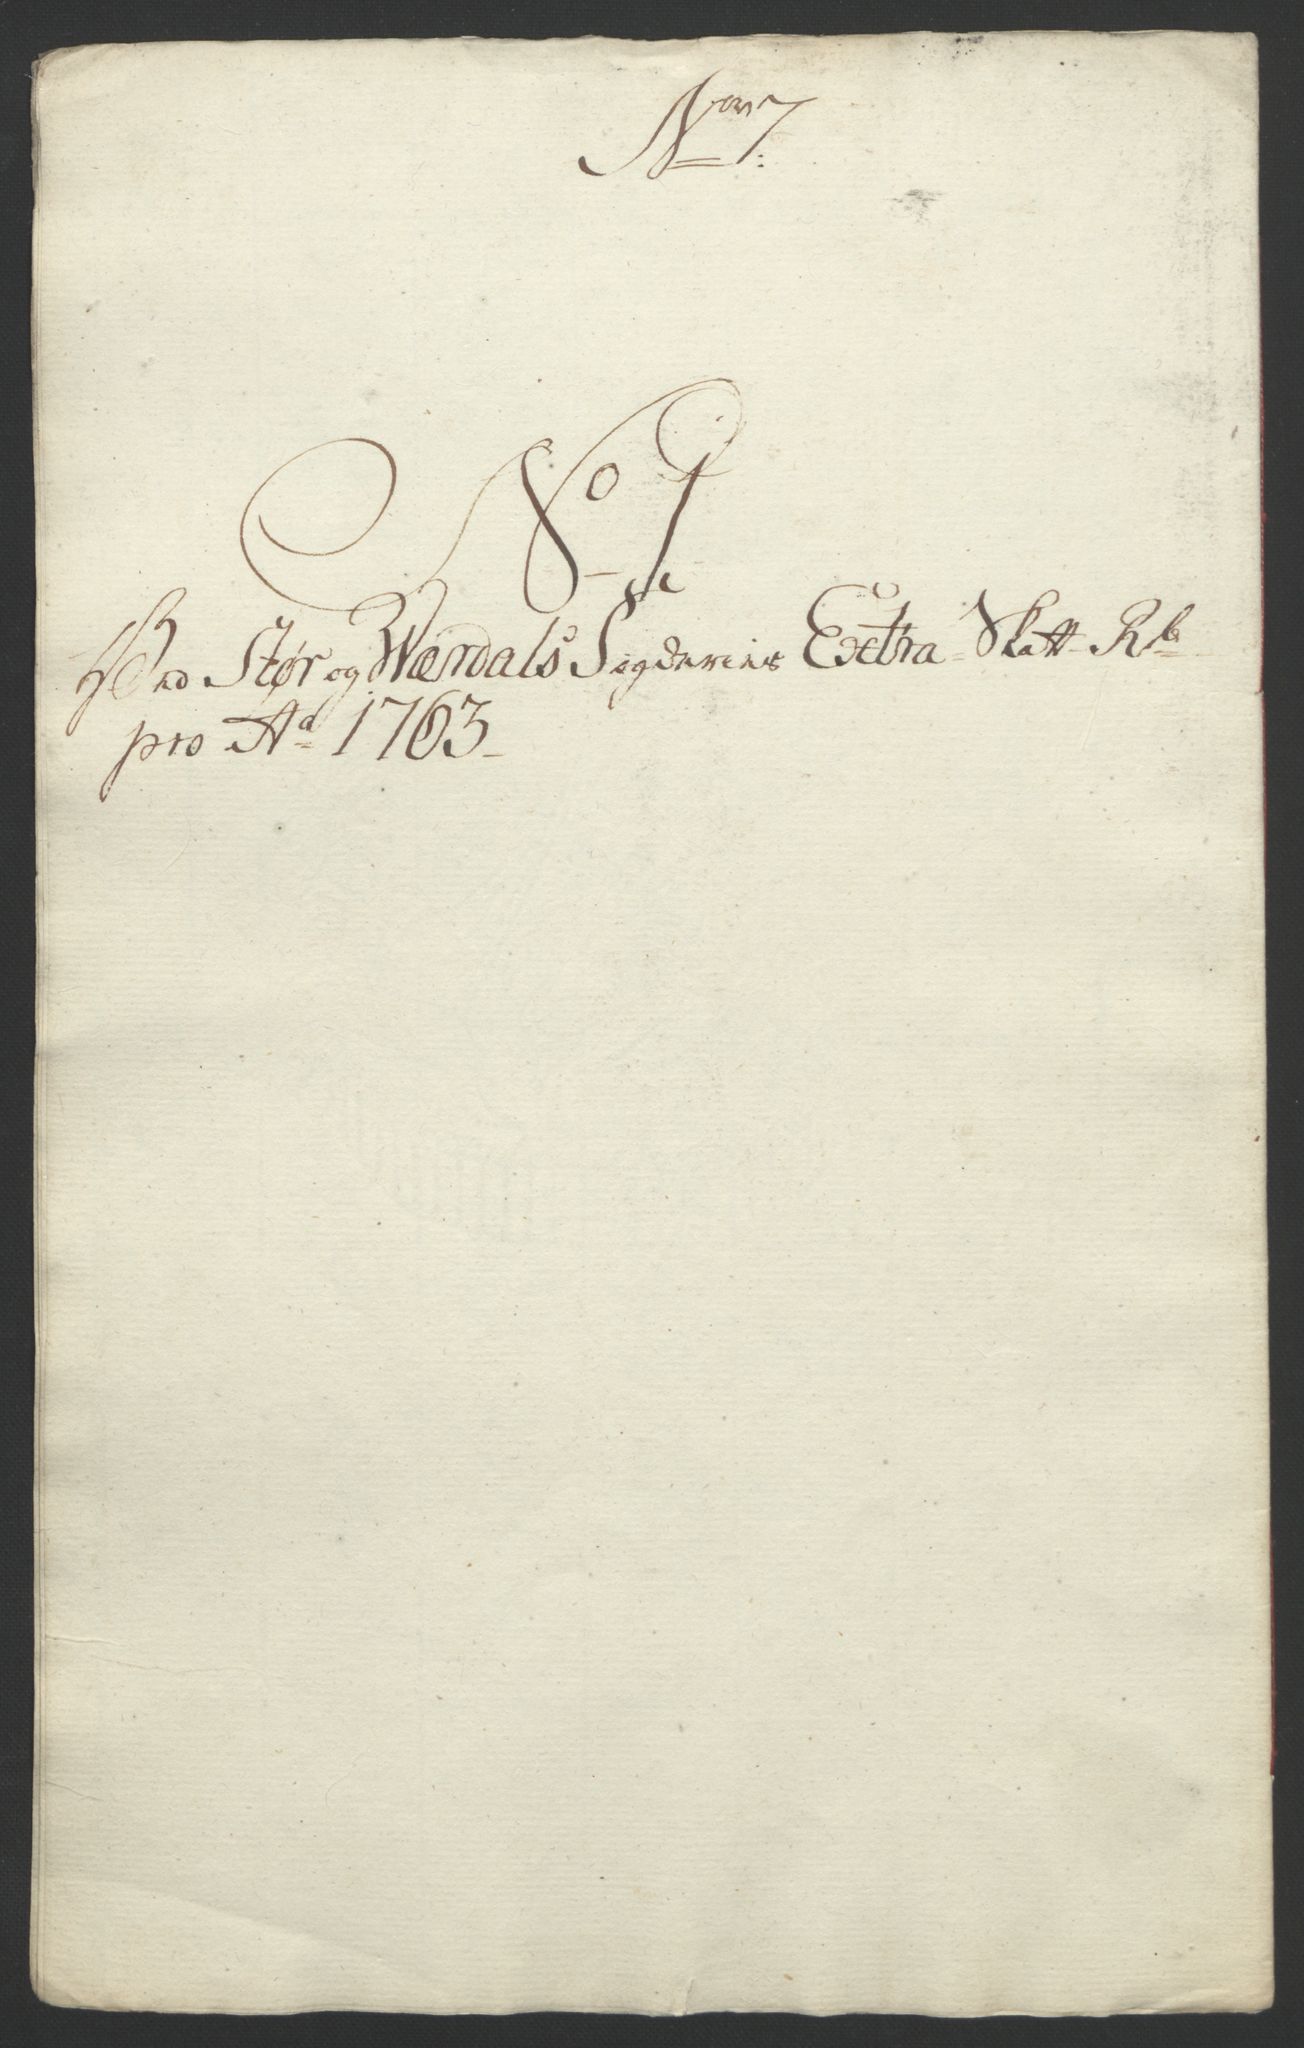 Nom 7.
No 1
Ved Stør og Wærdals Fogderies Extra Skatt Rb
pro Ao 1763